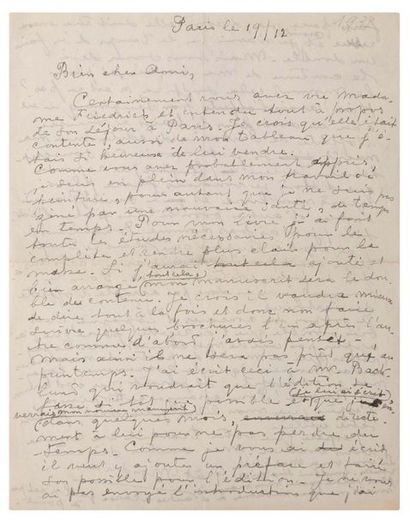 Paris le 19/12
Bien cher Ami,
Certainement vous avez vu Mada-
me Friedrich et entendu tout à propos
de son séjour à Paris. Je crois qu'elle était
contente, aussi de mon tableau que j'é-
tais si heureuse de leur vendre.
Comme vous avez probablement appris,
je suis en plein dans mon travail d'é-
criture, pour autant que je ne suis pas
gêné par une mauvaise santé, de temps
en temps. Pour mon livre j'ai fait
toutes les études nécessaires pour le
complèter et rendre plus clair pour la
masse. Si j'aurai tout cela ajouté et
bien arrangé mon manuscrit sera le dou-
ble de contenu. Je crois il vaudra mieux
de dire tout à la fois et donc non faire
suivre quelques brochures l'un après l'au-
tre comme d'abord j'avais pensé.
Mais ainsi il ne sera pas prêt que au
printemps. J'ai écrit ceci à Mr. Back
lund qui voudrait que l'édition se
fasse si tôt que possible et que
je lui ai écrit
dans quelques mois, directe-
ment à lui pour ne pas perdre du
temps. Comme je vous ai écrit
il veut y ajouter un préface et faire
son possible pour l'édition. Je ne vous
ai pas envoyé l'introduction que j'ai